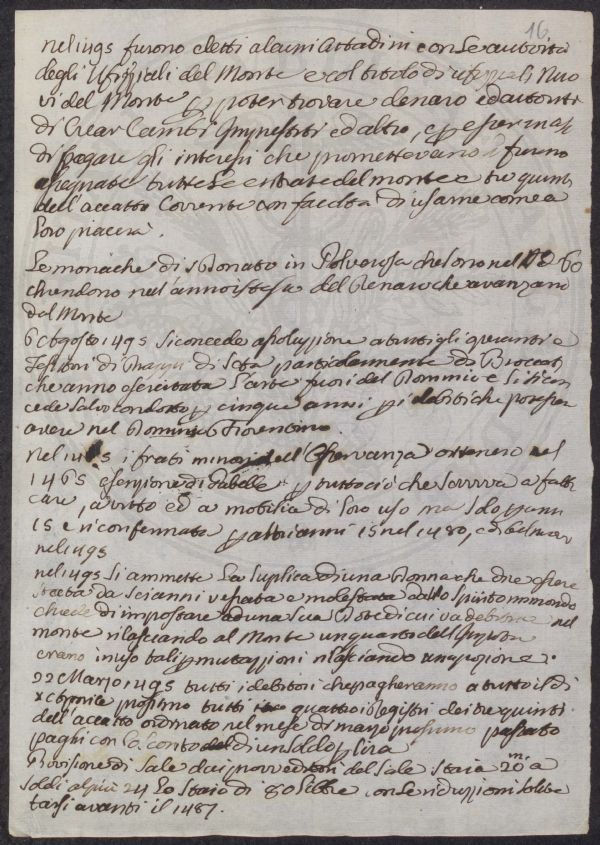 16
nel 1495 furono eletti alcuni Cittadini con le autorità
degli Ufiziali del Monte e col titolo di ufiziali Nuo
vi del Monte p poter trovare denaro ed autorità
di Crear Cambi Impresti ed altro, e p
di pagare gli interessi che promettevano furno
assegnate tutte le entrate del monte e tre quinti
dell'accatto Corrente con facoltà di usarne come a
loro piacerà.
Le monache di S Donato in Polverosa che sono nel 60
chiedono nell'anno istesso del Denaro che avanzano
dal Monte
6 Agosto 1495 si concede asoluzzione a tutti gli operanti e
Tessitori di Drappi di Seta particolarmente di Broccati
che anno esercitata l'arte fuori del Dominio e si li con
cede salvo condotto p cinque anni p i debiti che potesser
avere nel Dominio Fiorentino.
nel 1495 i frati minori dell'Oservanza ottenero nel
1465 esenzione di Gabelle p tutto ciò che serviva a fabbri
care, a vitto ed a mobilia di loro uso ma solo p anni
15 e riconfermata p altri anni 15 nel 1480,
nel 1495
nel 1495 Si ammette la suplica di una Donna che dice essere
stata da sei anni vesata e molestata dallo Spirito immondo
chiede di impostare ad una sua Dote di cui va debitore nel
monte rilasciando al Monte un quarto dell'
erano in uso tali p mutazzioni rilasciando una porzione.
22 Marzo 1495 tutti i debitori che pagheranno a tutto il dì
prossimo tutti quattro i registri dei tre quinti
dell'accatto ordinato nel mese di marzo prossimo passato
paghi con lo sconto di un soldo p lira
Provisione di Sale dai provveditori del Sale Staia 20 m. a
soldi 24 lo Staio di 80 libbre con le riduzzioni solite
farsi avanti il 1487.